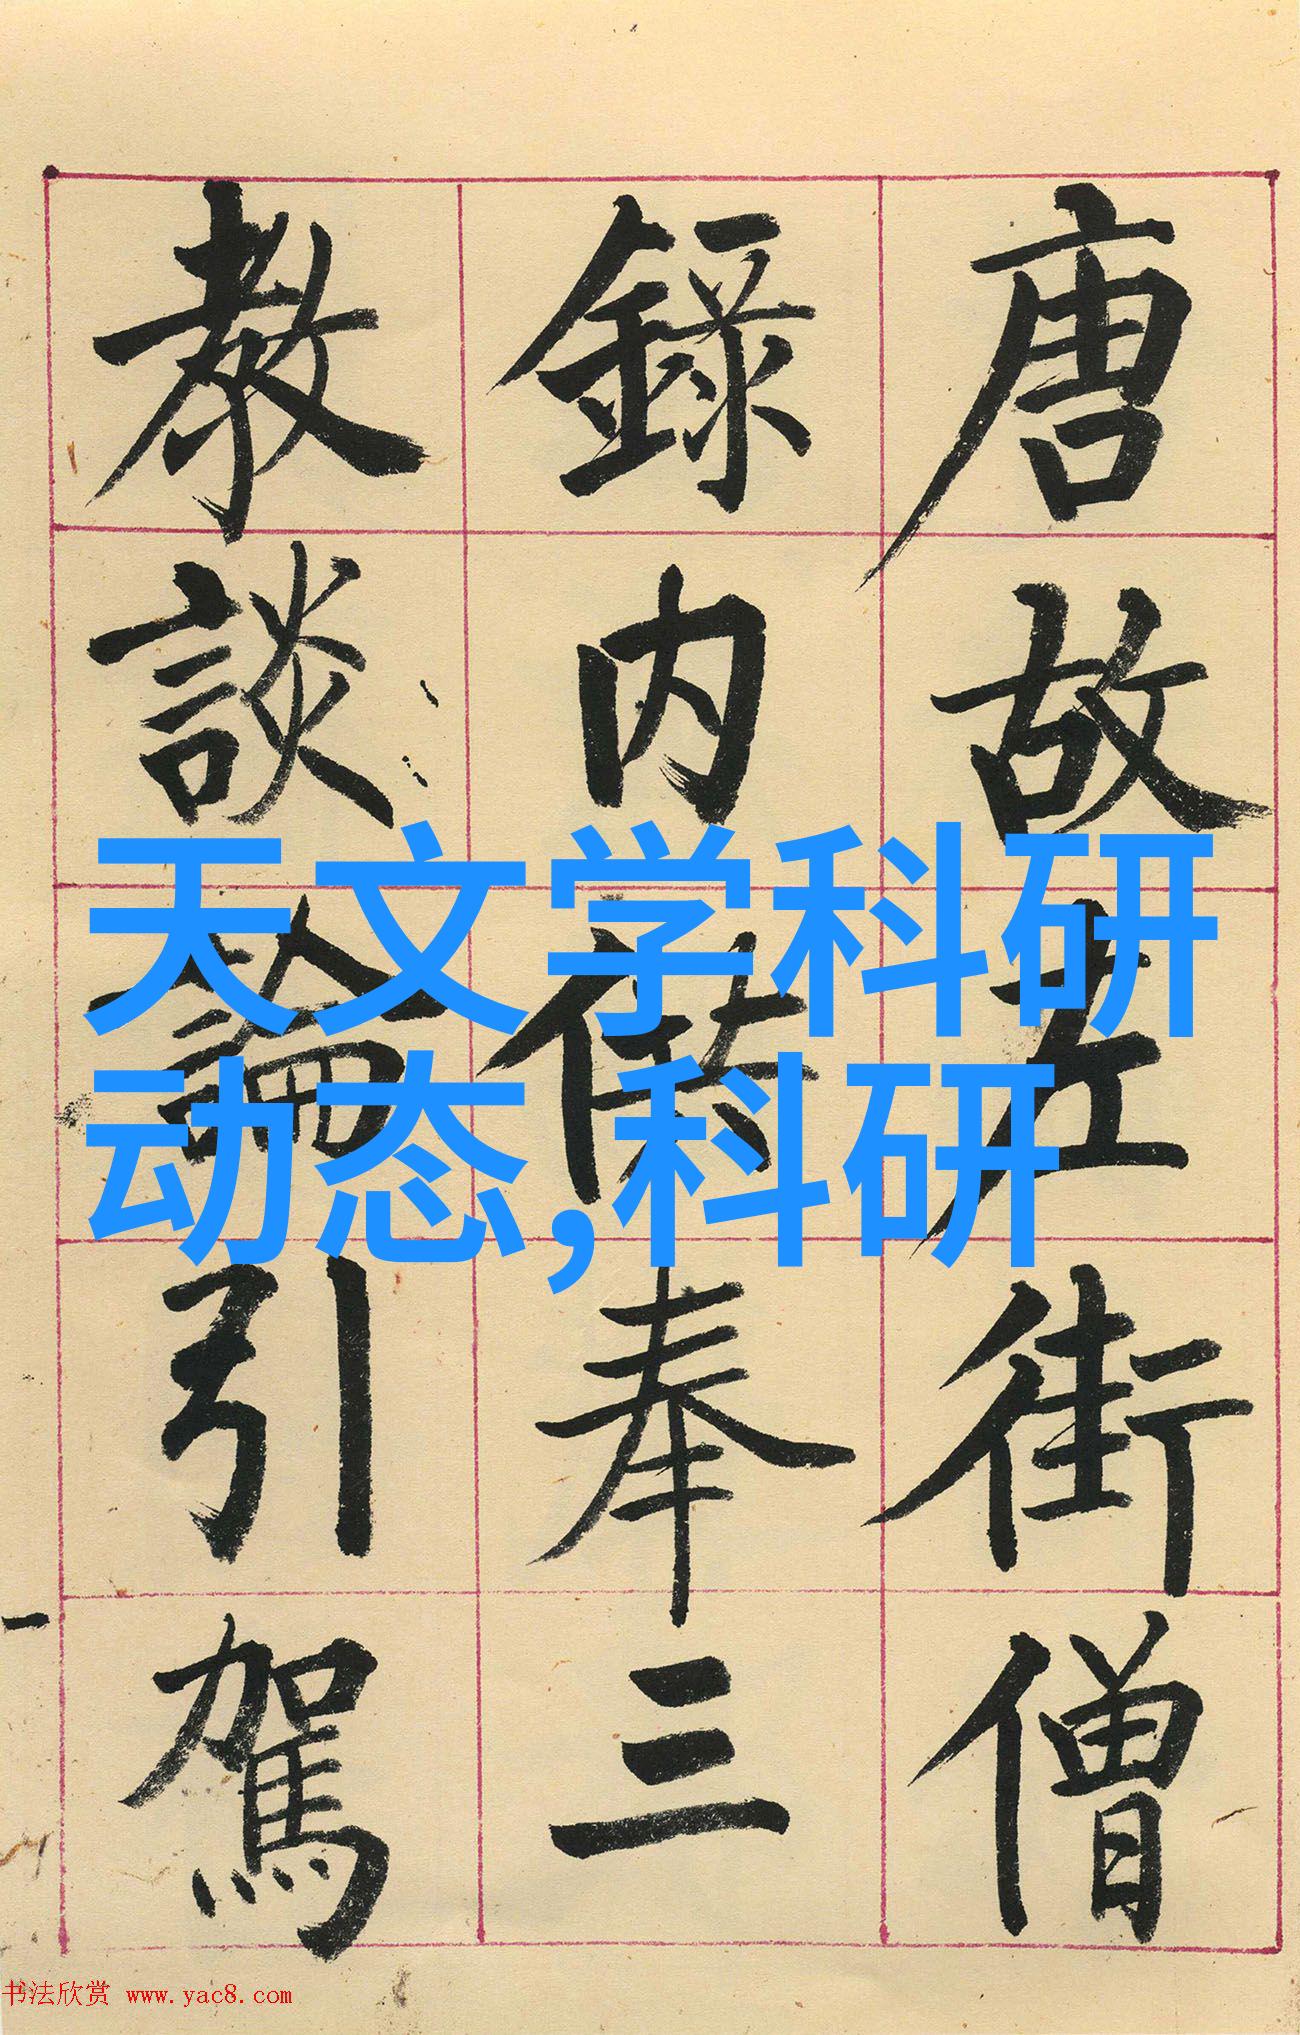 唐故左街僧
錄内供奉三
教談論引駕
天文学科研
动态,科研
书法欣赏 www.yac8.com